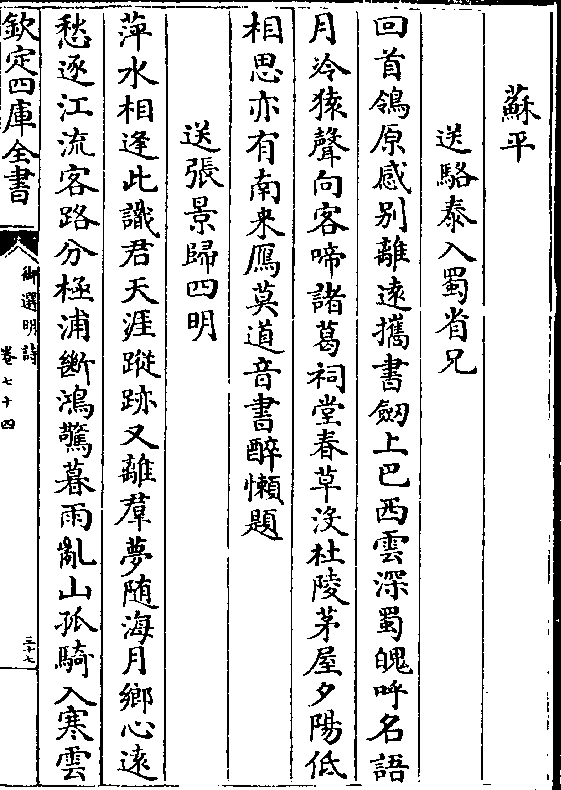 蘇平
送駱泰入蜀省兄
回首鴒原感别離遠攜書劒上巴西雲深蜀魄呼名語
月冷猿聲向客啼諸葛祠堂春草没杜陵茅屋夕陽低
相思亦有南来鴈莫道音書醉懶題
送張景歸四明
萍水相逢此識君天涯蹤跡又離羣夢随海月鄉心遠
愁逐江流客路分極浦斷鴻驚暮雨亂山孤騎入寒雲
欽定四庫全書
御選明詩
卷七十四
三十七